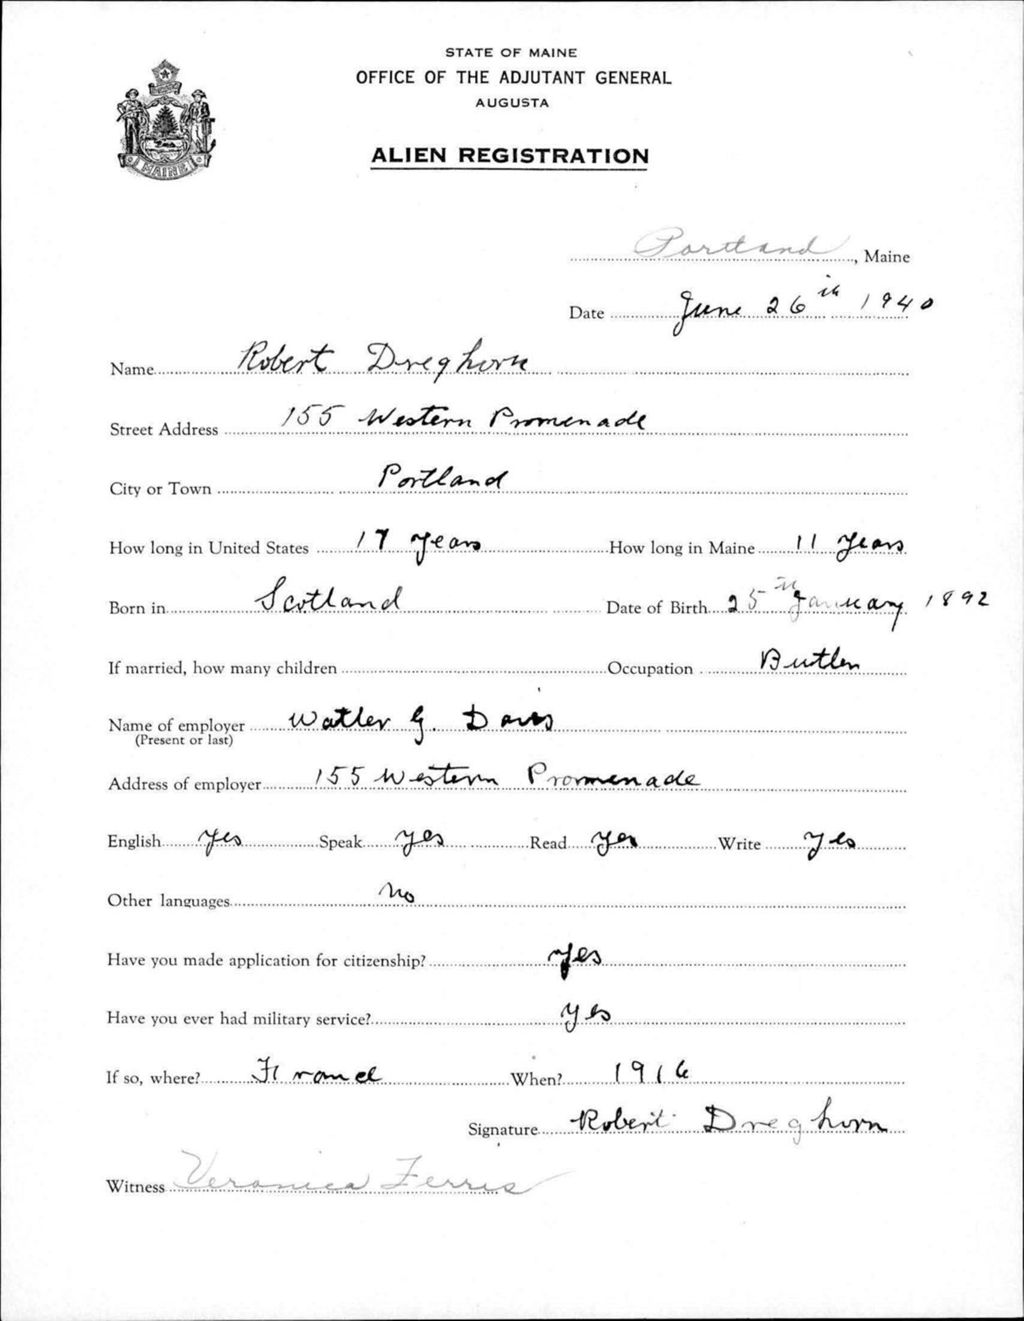 STATE OF MAINE
OFFICE OF THE ADJUTANT GENERAL
AUGUSTA
ALIEN REGISTRATION
MAINE
Portland, Maine
Date June 26th 1940
Name Robert Dreghorn
Street Address 155 Western Promenade
City or Town Portland
How long in United States 17 years How long in Maine 11 years
Born in Scotland Date of Birth 25th January 1892
If married, how many children Occupation Butler
Name of employer Watler G. Davis
(Present or last)
Address of employer 155 Western Promenade
English yes Speak yes Read yes Write yes
Other languages no
Have you made application for citizenship? yes
Have you ever had military service? yes
If so, where? France When? 1916
Signature Robert Dreghorn
Witness Veronica Ferris